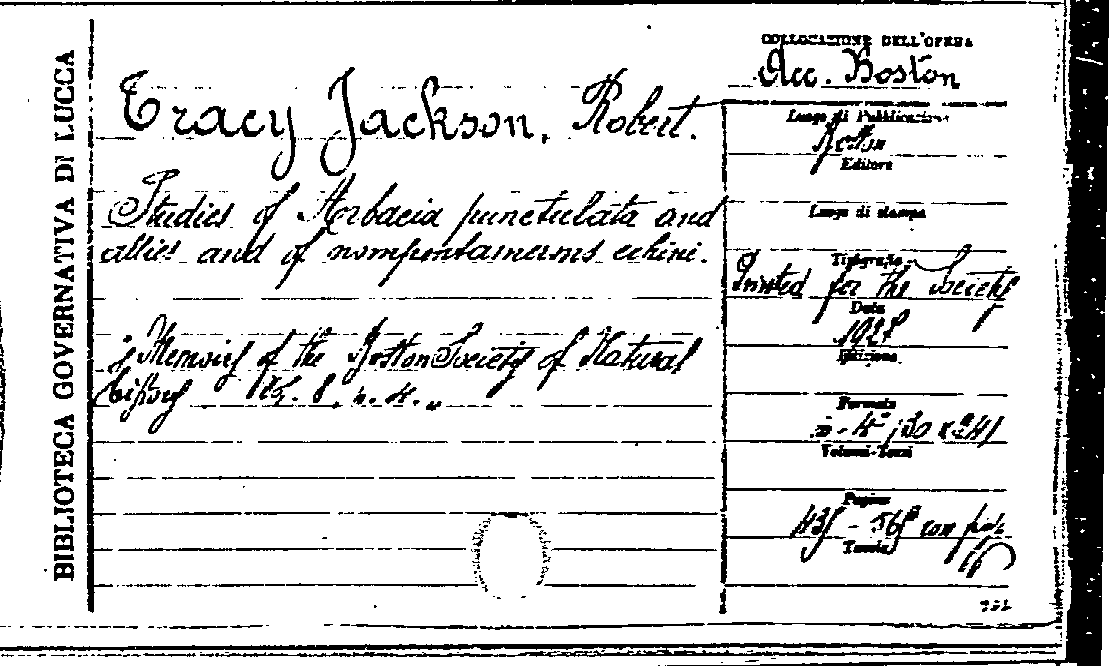 BIBLIOTECA GOVERNATIVA DI LUCCA
Tracy Jackson, Robert.
Studies of Arbacia punctulata and
allies and of nonpentamerous echini.
"Memoirs of the Boston Society of Natural
history Vol. 8. n. 4."
COLLOCAZIONE DELL'OPERA
Acc. Boston
Luogo di Pubblicazione
Boston
Editore
Luogo di stampa
Tipografo
Printed for the Society
Data
1927
Edizione
Formato
in-4° (30 x 24)
Volumi-Tomi
Pagine
435 - 565 con
Tavole